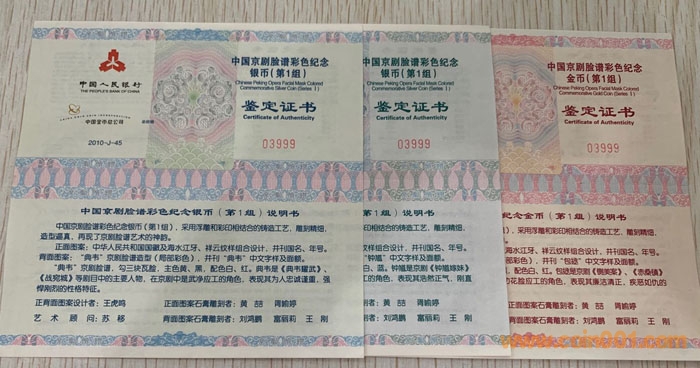 中国人民银行
THE PEOPLE'S BANK OF CHINA
中国金币总公司
2010-J-45
中国京剧脸谱彩色纪念
银币(第1组)
Chinese Peking Opera Facial Mask Colored
Commemorative Silver Coin (Series 1)
鉴定证书
Certificate of Authenticity
03999
中国京剧脸谱彩色纪念银币(第1组)说明书
中国京剧脸谱彩色纪念银币(第1组),采用浮雕和彩印相结合的铸造工艺,雕刻精细、
造型逼真,再现了京剧脸谱艺术的神韵。
正面图案:中华人民共和国国徽及海水江牙、祥云纹样组合设计,并刊国名、年号。
背面图案:“典韦”京剧脸谱造型(局部彩色),并刊“典韦”中文字样及面额。
“典韦”京剧脸谱,勾三块瓦脸,主色黄、黑,配色白、红。典韦是《典韦耀武》、
《战宛城》等剧目中的主要人物,在京剧中是武净应工的角色,表现其为人忠诚谨重,强
悍刚烈的性格特征。
正背面图案设计者:王虎鸣
正面图案石膏雕刻者:黄 喆 周婉婷
艺术顾问:苏移
背面图案石膏雕刻者:刘鸿鹏 富丽莉 王 刚
中国京剧脸谱彩色纪念
银币(第1组)
Chinese Peking Opera Facial Mask Colored
Commemorative Silver Coin (Series 1)
鉴定证书
Certificate of Authenticity
03999
(第1组)说明书
相结合的铸造工艺,雕刻精细、
样组合设计,并刊国名、年号。
“钟馗”中文字样及面额。
白、蓝。钟馗是京剧《钟馗嫁妹》
的角色,表现其浩然正气,刚直
正面图案石膏雕刻者:黄 喆 周婉婷
背面图案石膏雕刻者:刘鸿鹏 富丽莉 王 刚
中国京剧脸谱彩色纪念
金币(第1组)
Chinese Peking Opera Facial Mask Colored
Commemorative Gold Coin (Series 1)
鉴定证书
Certificate of Authenticity
03999
纪念金币(第1组)说明书
相结合的铸造工艺,雕刻精细、
样组合设计,并刊国名、年号。
并刊“包拯”中文字样及面额。
,配色白、红。包拯是京剧《铡美案》、《赤桑镇》
的花脸应工的角色,表现其廉洁清正,疾恶如仇的
正面图案石膏雕刻者:黄 喆 周婉婷
背面图案石膏雕刻者:刘鸿鹏 富丽莉 王 刚